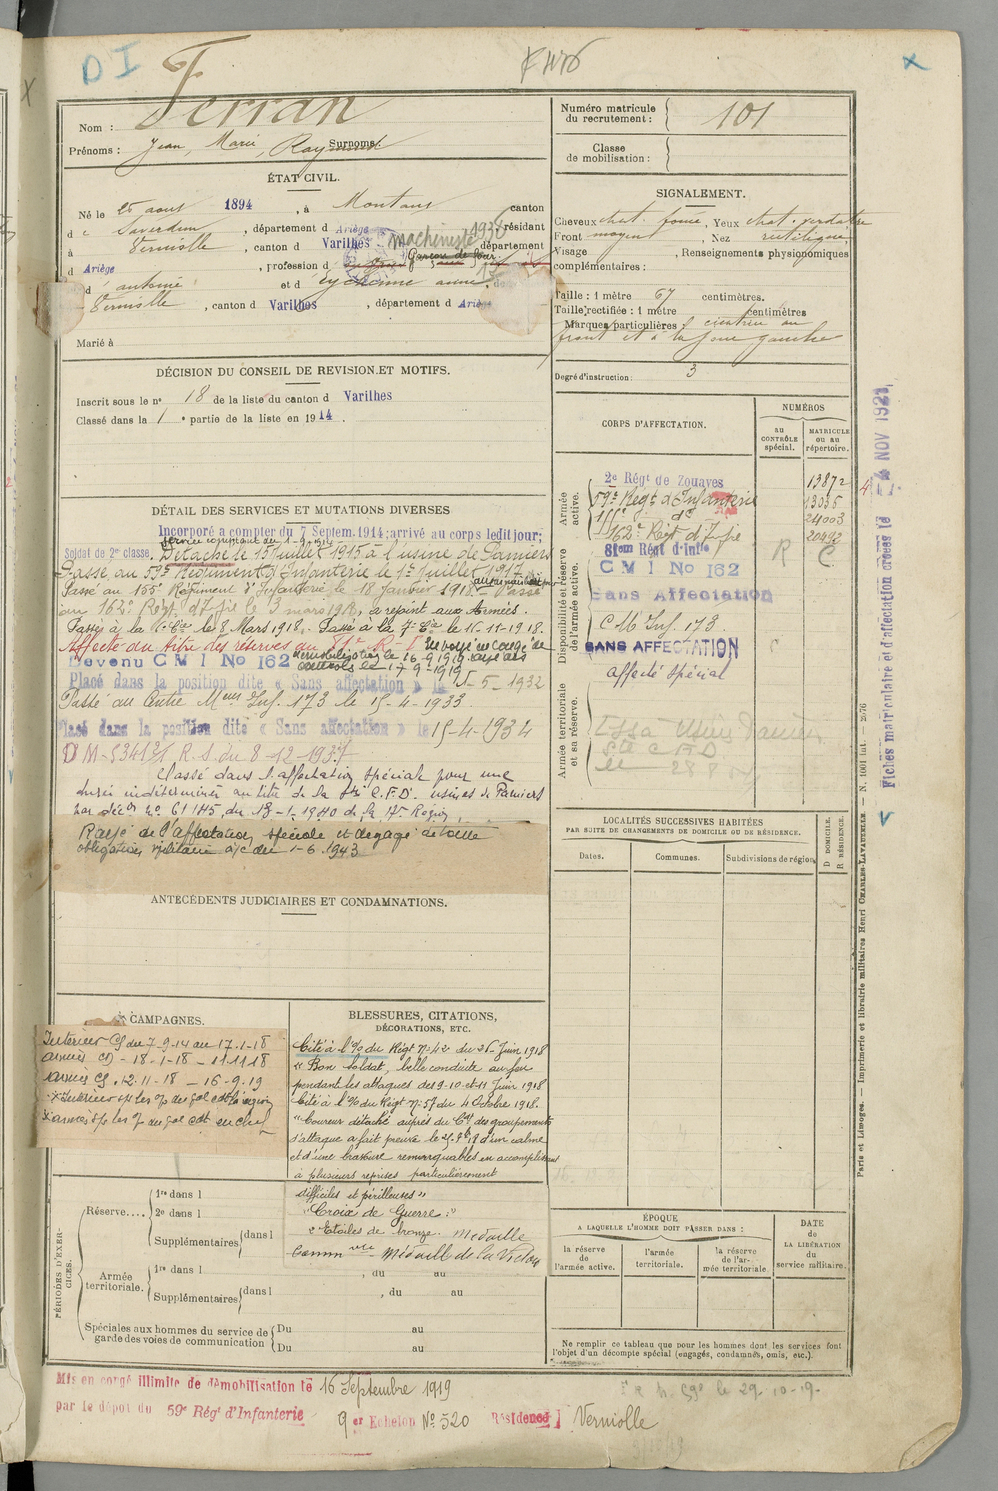 D I
Numéro matricule
du recrutement :
101
Nom : Ferran
Prénoms : Jean, Marie, Raymond Surnoms :
Classe
de mobilisation :
ÉTAT CIVIL.
Né le 25 aout 1894, à Montaut canton
de Saverdun, département d Ariège, résidant
à Verniolle, canton d Varilhes machiniste 1936 département
d Ariège, profession d Garçon de four
d'antoine et d
Verniolle, canton d Varilhes, département d Ariège
Marié à
SIGNALEMENT.
Cheveux chat. foncé, Yeux chat. verdatre
Front moyen, Nez rectiligne
Visage , Renseignements physionomiques
complémentaires :
Taille : 1 mètre 67 centimètres.
Taille rectifiée : 1 mètre centimètres
Marques particulières : cicatrice au
front et à la joue gauche
Degré d'instruction : 3
DÉCISION DU CONSEIL DE REVISION ET MOTIFS.
Inscrit sous le n° 18 de la liste du canton d Varilhes
Classé dans la 1 e partie de la liste en 1914.
CORPS D'AFFECTATION.
NUMÉROS
au
CONTRÔLE
spécial.
MATRICULE
ou au
répertoire.
Armée
active.
2e Régt de Zouaves 13872
59e Régt d'Infanterie 13035
do 24003
162e Régt d'Infie 20492
Disponibilité et réserve
de l'armée active.
81em Régt d'Infie R C
C M I No 162
Sans Affectation
C M Inf. 173
SANS AFFECTATION
affecté spécial
Armée territoriale
et sa réserve.
DÉTAIL DES SERVICES ET MUTATIONS DIVERSES
Incorporé a compter du 7 Septem. 1914; arrivé au corps ledit jour;
Soldat de 2e classe. Détaché le 15 Juillet 1915 à l'usine de Pamiers
Passé au 59e Régiment d'Infanterie le 1er Juillet 1917
Passé au 155e Régiment d'Infanterie le 18 Janvier 1918. Passé
au 162e Régt d'Infie le 3 mars 1918, a rejoint aux Armées.
Passé à la Cie le 8 Mars 1918. Passé à la 7e Cie le 11-11-1918.
Affecté au titre des réserves au R. I Envoyé en congé de
démobilisation le 16-9-1919 rayé des
contrôles le 17-9-1919
Devenu C M I No 162
Placé dans la position dite « Sans affectation » le 15-5-1932
Passé au Centre Meur Inf. 173 le 15-4-1933
Placé dans la position dite « Sans affectation » le 15-4-1934
D M-5341 2/1 R. S. du 8-12-1937
Classé dans l'affectation spéciale pour une
durée indéterminée au titre de la Sté C.F.D. usines de Pamiers
par décon no 611 H5, du 13-1-1940 de la 17e Région.
Rayé de l'affectation spéciale et dégagé de toute
obligation militaire a/c du 1-6-1943
LOCALITÉS SUCCESSIVES HABITÉES
PAR SUITE DE CHANGEMENTS DE DOMICILE OU DE RÉSIDENCE.
D DOMICILE.
R RÉSIDENCE.
Dates.
Communes.
Subdivisions de région.
ANTÉCÉDENTS JUDICIAIRES ET CONDAMNATIONS.
CAMPAGNES.
Intérieur CS du 7-9-14 au 17-1-18
armées CD - 18-1-18 - 11.11 18
armées CS. 12.11-18 - 16-9.19
BLESSURES, CITATIONS,
DÉCORATIONS, ETC.
Cité à l'O/ du Régt No 42 du 26 Juin 1918
« Bon soldat, belle conduite au feu
pendant les attaques des 9-10 et 11 Juin 1918
Cité à l'O/ du Régt No 57 du 4 Octobre 1918.
"Coureur détaché auprès du Ct des groupements
d'attaque a fait preuve le d'un calme
et d'une bravoure remarquables en accomplissant
à plusieurs reprises particulièrement
difficiles et périlleuses"
"Croix de Guerre :"
« Etoiles de bronze. Médaille
Commve Médaille de la Victoire
PÉRIODES D'EXERCICES.
Réserve....
1re dans l
2e dans l
Supplémentaires dans l
Armée
territoriale.
1re dans l , du au
Supplémentaires dans l , du au
Spéciales aux hommes du service de
garde des voies de communication
Du au
Du au
ÉPOQUE
A LAQUELLE L'HOMME DOIT PASSER DANS :
DATE
de
LA LIBÉRATION
du
service militaire.
la réserve
de
l'armée active.
l'armée
territoriale.
la réserve
de l'ar-
mée territoriale.
Ne remplir ce tableau que pour les hommes dont les services font
l'objet d'un décompte spécial (engagés, condamnés, omis, etc.).
Mis en congé illimité de démobilisation le 16 Septembre 1919
par le dépôt du 59e Régt d'Infanterie
9 er Echelon No 520 Résidence Verniolle
Fiches matriculaire et d'affectation créées le 4 NOV 1921
Paris et Limoges. — Imprimerie et librairie militaires Henri CHARLES-LAVAUZELLE. — N. 1001 Int. —